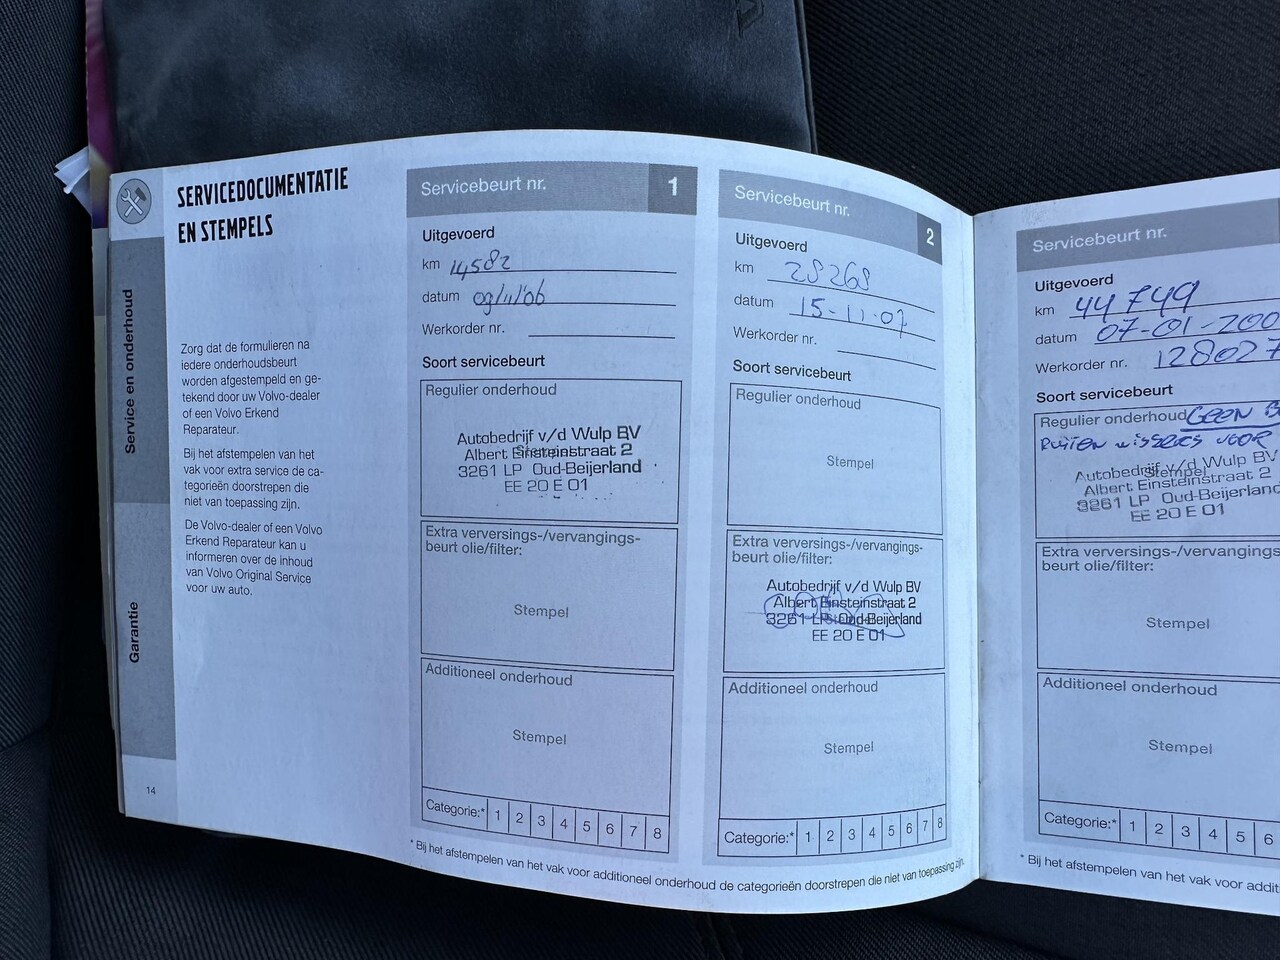 SERVICEDOCUMENTATIE
EN STEMPELS
Service en onderhoud
Garantie
Zorg dat de formulieren na
iedere onderhoudsbeurt
worden afgestempeld en ge-
tekend door uw Volvo-dealer
of een Volvo Erkend
Reparateur.
Bij het afstempelen van het
vak voor extra service de ca-
tegorieën doorstrepen die
niet van toepassing zijn.
De Volvo-dealer of een Volvo
Erkend Reparateur kan u
informeren over de inhoud
van Volvo Original Service
voor uw auto.
14
Servicebeurt nr. 1
Uitgevoerd
km 14582
datum 09/11/'06
Werkorder nr.
Soort servicebeurt
Regulier onderhoud
Stempel
Autobedrijf v/d Wulp BV
Albert Einsteinstraat 2
3261 LP Oud-Beijerland
EE 20 E 01
Extra verversings-/vervangings-
beurt olie/filter:
Stempel
Additioneel onderhoud
Stempel
Categorie:* 1 2 3 4 5 6 7 8
Servicebeurt nr. 2
Uitgevoerd
km 28268
datum 15-11-07
Werkorder nr.
Soort servicebeurt
Regulier onderhoud
Stempel
Extra verversings-/vervangings-
beurt olie/filter:
Autobedrijf v/d Wulp BV
Albert Einsteinstraat 2
3261 LP Oud-Beijerland
EE 20 E 01
Additioneel onderhoud
Stempel
Categorie:* 1 2 3 4 5 6 7 8
* Bij het afstempelen van het vak voor additioneel onderhoud de categorieën doorstrepen die niet van toepassing zijn.
Servicebeurt nr.
Uitgevoerd
km 44749
datum 07-01-200
Werkorder nr. 128027
Soort servicebeurt
Regulier onderhoud GEEN
RUITEN WISSERS VOOR
Stempel
Autobedrijf v/d Wulp BV
Albert Einsteinstraat 2
3261 LP Oud-Beijerland
EE 20 E 01
Extra verversings-/vervangings-
beurt olie/filter:
Stempel
Additioneel onderhoud
Stempel
Categorie:* 1 2 3 4 5 6
* Bij het afstempelen van het vak voor addit